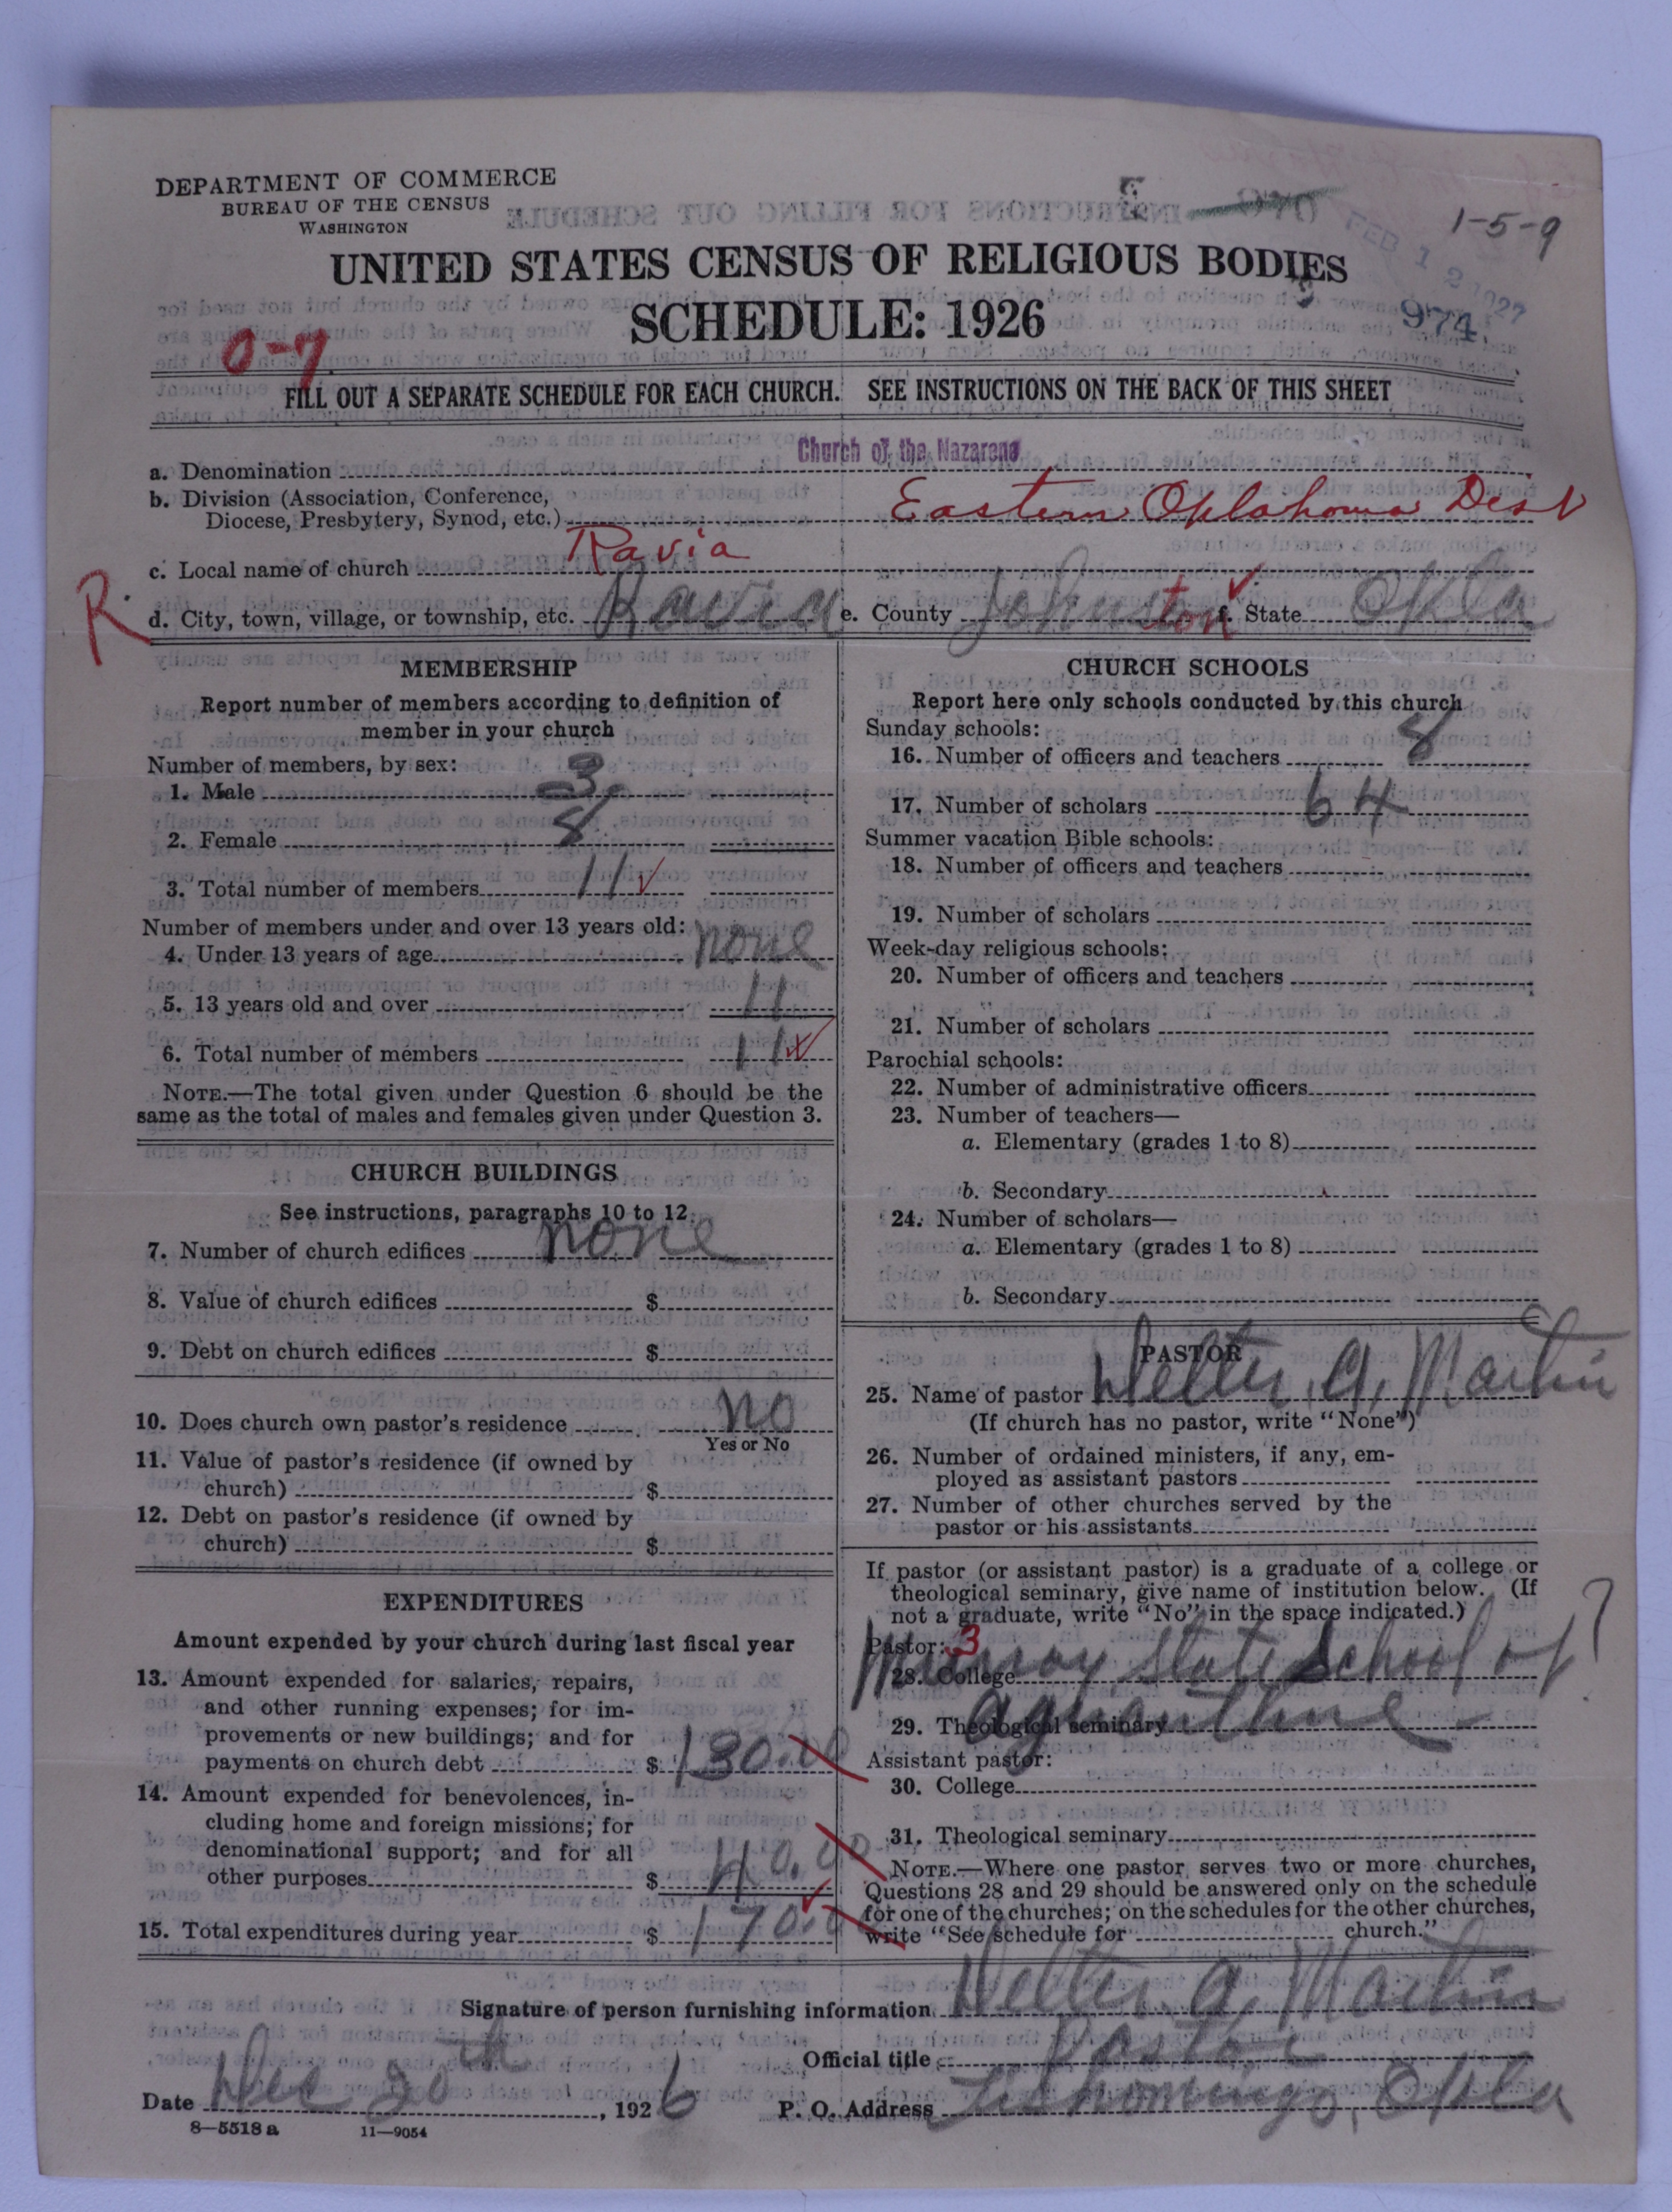 DEPARTMENT OF COMMERCE
BUREAU OF THE CENSUS
WASHINGTON
1-5-9
FEB 12 1927
UNITED STATES CENSUS OF RELIGIOUS BODIES
SCHEDULE: 1926
974
0-7
FILL OUT A SEPARATE SCHEDULE FOR EACH CHURCH. SEE INSTRUCTIONS ON THE BACK OF THIS SHEET
a. Denomination Church of the Nazarene
b. Division (Association, Conference,
Diocese, Presbytery, Synod, etc.) Eastern Oklahoma Dist
c. Local name of church Ravia
R. d. City, town, village, or township, etc. Ravia e. County Johnston f. State Okla
MEMBERSHIP
Report number of members according to definition of
member in your church
Number of members, by sex:
1. Male 3
2. Female 8
3. Total number of members 11 ✓
Number of members under and over 13 years old:
4. Under 13 years of age none
5. 13 years old and over 11
6. Total number of members 11
NOTE.—The total given under Question 6 should be the
same as the total of males and females given under Question 3.
CHURCH BUILDINGS
See instructions, paragraphs 10 to 12.
7. Number of church edifices none
8. Value of church edifices $
9. Debt on church edifices $
10. Does church own pastor's residence no
Yes or No
11. Value of pastor's residence (if owned by
church) $
12. Debt on pastor's residence (if owned by
church) $
EXPENDITURES
Amount expended by your church during last fiscal year
13. Amount expended for salaries, repairs,
and other running expenses; for im-
provements or new buildings; and for
payments on church debt $ 130.00
14. Amount expended for benevolences, in-
cluding home and foreign missions; for
denominational support; and for all
other purposes $ 40.00
15. Total expenditures during year $ 170.00
CHURCH SCHOOLS
Report here only schools conducted by this church
Sunday schools:
16. Number of officers and teachers 8
17. Number of scholars 64
Summer vacation Bible schools:
18. Number of officers and teachers
19. Number of scholars
Week-day religious schools:
20. Number of officers and teachers
21. Number of scholars
Parochial schools:
22. Number of administrative officers
23. Number of teachers—
a. Elementary (grades 1 to 8)
b. Secondary
24. Number of scholars—
a. Elementary (grades 1 to 8)
b. Secondary
PASTOR
25. Name of pastor Welter. A. Martin
(If church has no pastor, write "None")
26. Number of ordained ministers, if any, em-
ployed as assistant pastors
27. Number of other churches served by the
pastor or his assistants
If pastor (or assistant pastor) is a graduate of a college or
theological seminary, give name of institution below. (If
not a graduate, write "No" in the space indicated.)
Pastor: 3
28. College Murray State School of ?
29. Theological seminary
Assistant pastor:
30. College
31. Theological seminary
NOTE.—Where one pastor serves two or more churches,
Questions 28 and 29 should be answered only on the schedule
for one of the churches; on the schedules for the other churches,
write "See schedule for church."
Signature of person furnishing information Welter. A. Martin
Official title Pastor
Date Dec 20th, 1926 P. O. Address Tishomingo, Okla
8—5518 a 11—9054